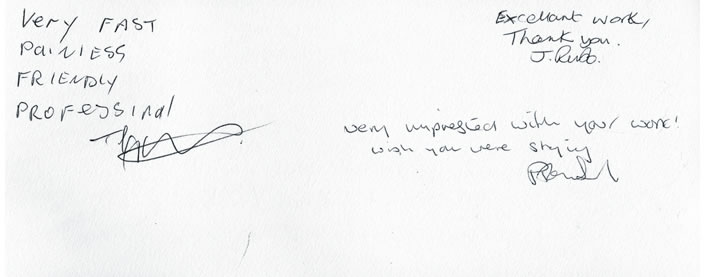 Very FAST
PAiNLESS
FRIENDLY
PROFeSSINal
Excellant work,
Thank you.
very impressed with your work!
wish you were staying